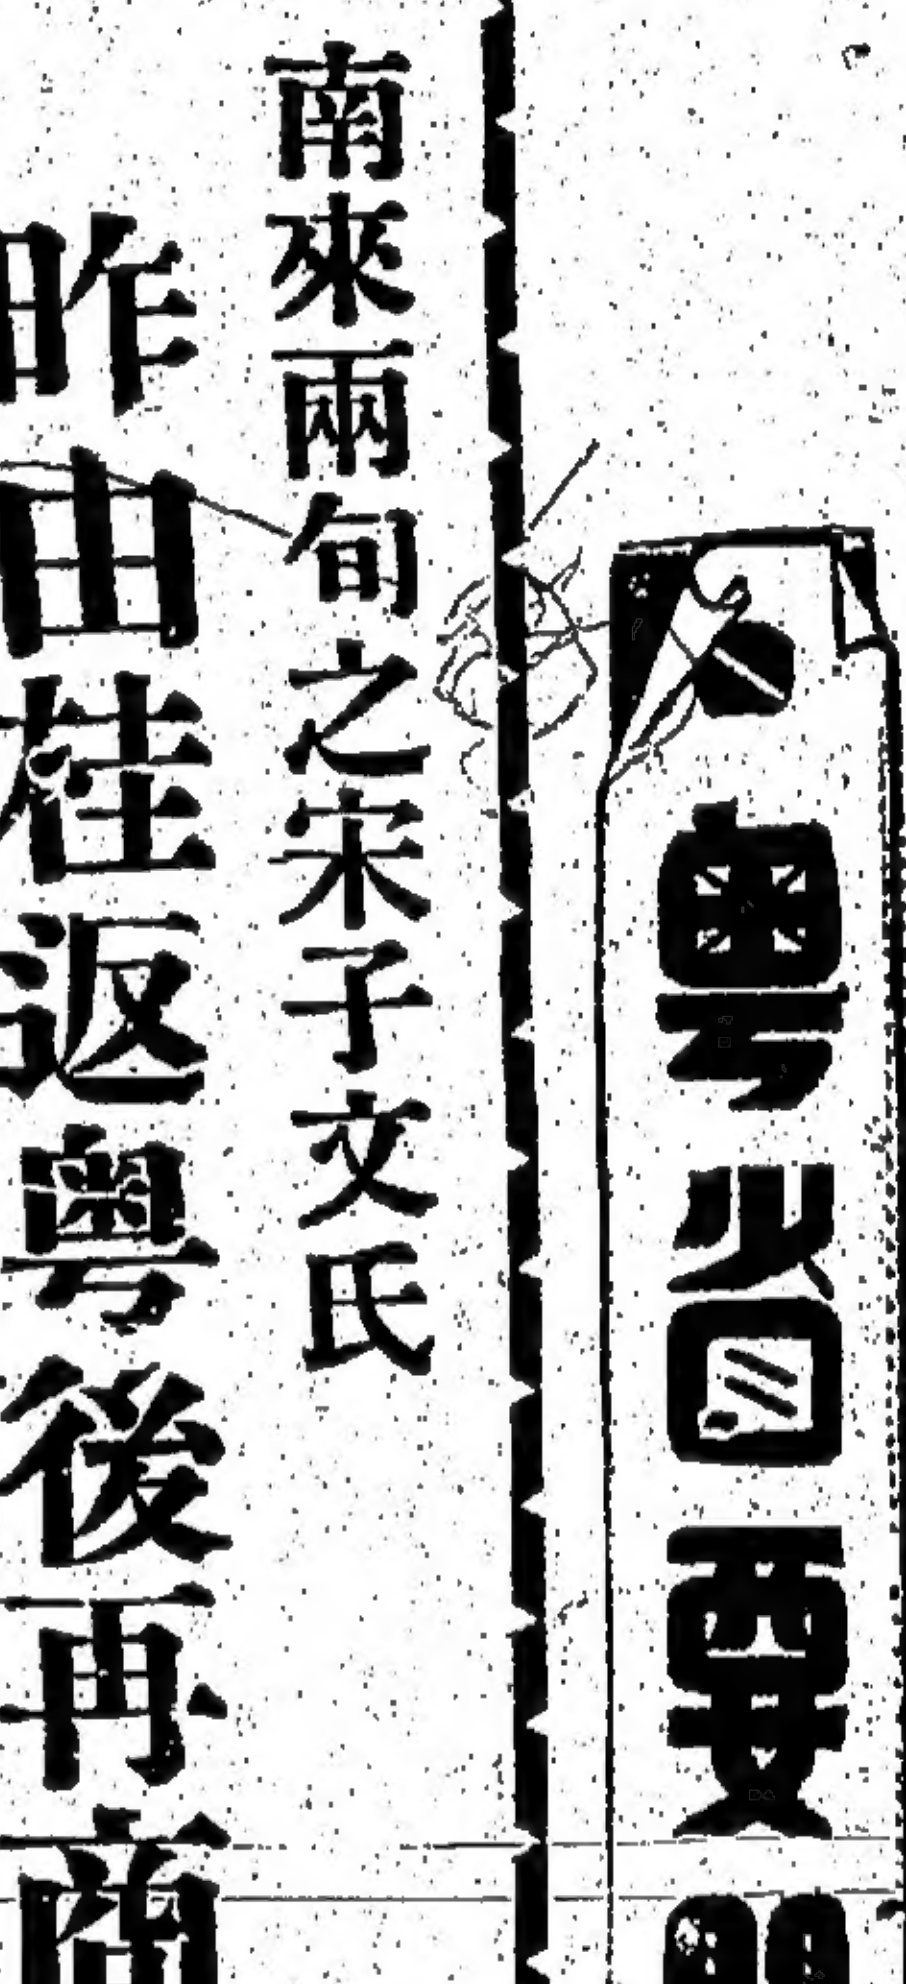 粵省要
南來兩旬之宋子文氏
昨由桂返粵後再商